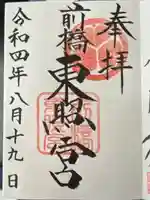 奉拝
前橋
東照宮
令和四年八月十九日